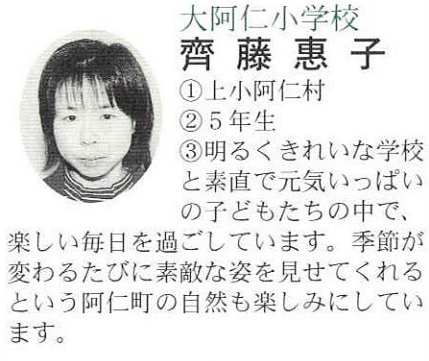 大阿仁小学校
齊藤惠子
①上小阿仁村
②5年生
③明るくきれいな学校
と素直で元気いっぱい
の子どもたちの中で、
楽しい毎日を過ごしています。季節が
変わるたびに素敵な姿を見せてくれる
という阿仁町の自然も楽しみにしてい
ます。